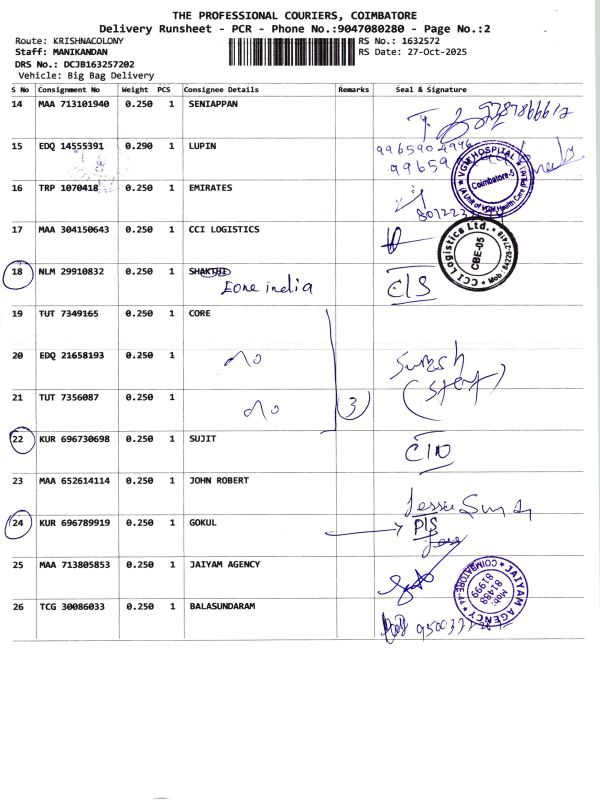 THE PROFESSIONAL COURIERS, COIMBATORE
Delivery Runsheet - PCR - Phone No.:9047080280 - Page No.:2
Route: KRISHNACOLONY RS No.: 1632572
Staff: MANIKANDAN RS Date: 27-Oct-2025
DRS No.: DCJB163257202
Vehicle: Big Bag Delivery
S No Consignment No Weight PCS Consignee Details Remarks Seal & Signature
14 MAA 713101940 0.250 1 SENIAPPAN
15 EDQ 14555391 0.290 1 LUPIN
VGM HOSPITAL
Coimbatore-5
16 TRP 1070418 0.250 1 EMIRATES
17 MAA 304150643 0.250 1 CCI LOGISTICS
CCI Logistics Ltd.
CBE-05
18 NLM 29910832 0.250 1 SHAKTHI
Eone india C/S
19 TUT 7349165 0.250 1 CORE
20 EDQ 21658193 0.250 1
Suresh
(Staff)
21 TUT 7356087 0.250 1 3
22 KUR 696730698 0.250 1 SUJIT
23 MAA 652614114 0.250 1 JOHN ROBERT
24 KUR 696789919 0.250 1 GOKUL P/S
25 MAA 713805853 0.250 1 JAIYAM AGENCY
JAIYAM AGENCY
Mob:
81488
81999
26 TCG 30086033 0.250 1 BALASUNDARAM